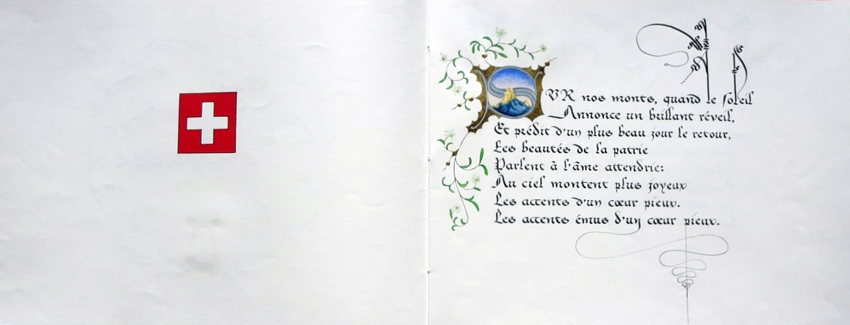 SUR nos monts, quand le soleil
Annonce un brillant réveil,
Et prédit d'un plus beau jour le retour,
Les beautés de la patrie
Parlent à l'âme attendrie:
Au ciel montent plus joyeux
Les accents d'un cœur pieux.
Les accents émus d'un cœur pieux.